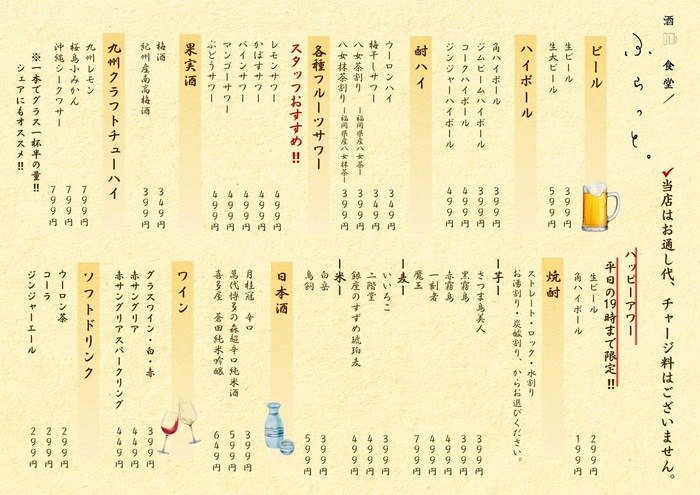 酒 食堂
ふらっと。
✓当店はお通し代、チャージ料はございません。
ビール
生ビール 399円
生大ビール 599円
ハイボール
角ハイボール 399円
ジムビームハイボール 399円
コークハイボール 499円
ジンジャーハイボール 499円
酎ハイ
ウーロンハイ 349円
梅干しサワー 349円
八女茶割り ー福岡県産八女茶ー 399円
八女抹茶割り ー福岡県産八女抹茶ー 399円
各種フルーツサワー
スタッフおすすめ!!
レモンサワー 499円
かぼすサワー 499円
パインサワー 499円
マンゴーサワー 499円
ぶどうサワー 499円
果実酒
梅酒 349円
紀州産南高梅酒 399円
九州クラフトチューハイ
九州レモン 799円
桜島小みかん 799円
沖縄シークワサー 799円
※一本でグラス一杯半の量!!
シェアにもオススメ!!
ハッピーアワー
平日の19時まで限定!!
生ビール 299円
角ハイボール 199円
焼酎
ストレート・ロック・水割り
お湯割り・炭酸割り、からお選びください。
ー芋ー
さつま島美人 399円
黒霧島 399円
赤霧島 499円
一刻者 499円
魔王 799円
ー麦ー
いいちこ 399円
二階堂 499円
銀座のすずめ琥珀麦 499円
ー米ー
白岳 399円
鳥飼 599円
日本酒
月桂冠 辛口 399円
萬代博多の森超辛口純米酒 599円
喜多屋 蒼田純米吟醸 649円
ワイン
グラスワイン・白・赤 399円
赤サングリア 449円
赤サングリアスパークリング 449円
ソフトドリンク
ウーロン茶 299円
コーラ 299円
ジンジャーエール 299円